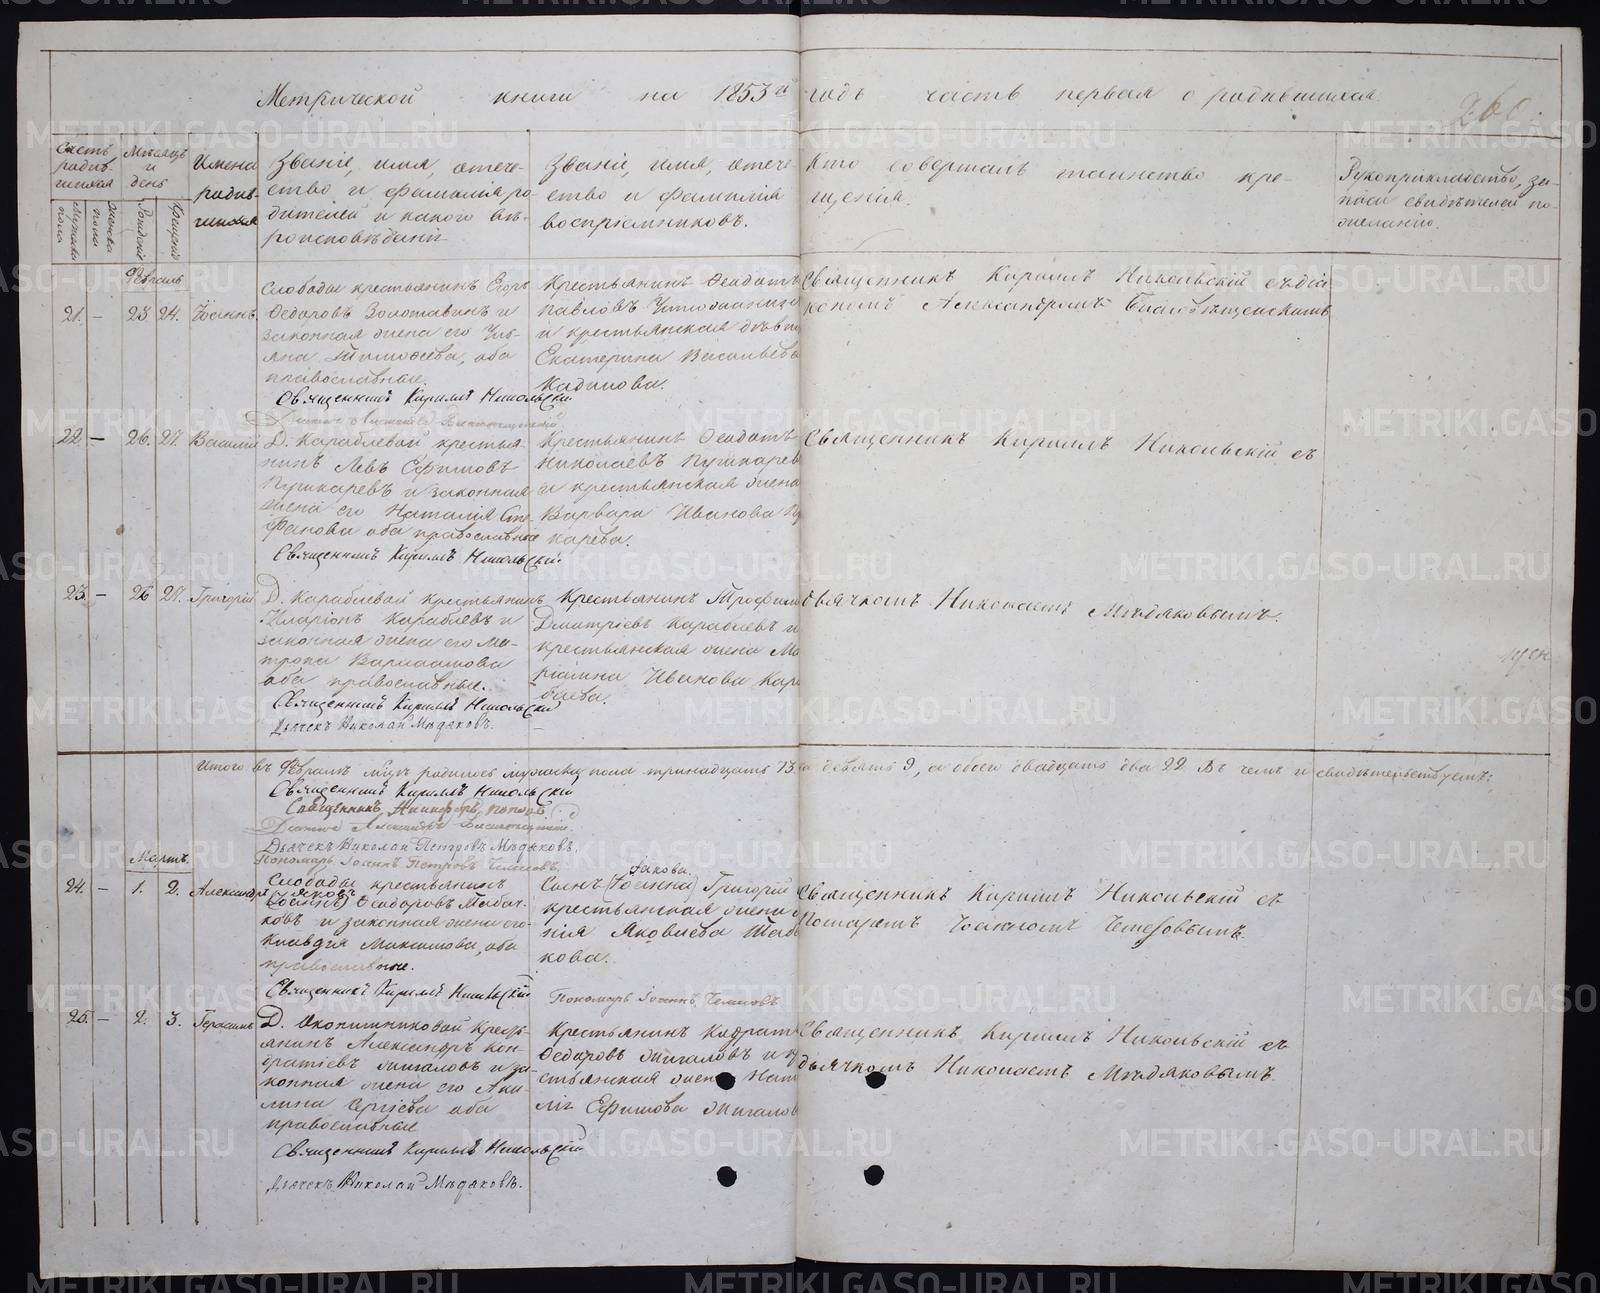 Метрической книги на 1853й годъ часть первая о родившихся.
260.
Счетъ родив-
шихся
Мужска пола
Женска пола
Мѣсяцъ
и
день
Рожденія
Крещенія
Имена
родив-
шихся
Званіе, имя, отече-
ство и фамилія ро-
дителей и какого вѣ-
роисповѣданія
Званіе, имя, отече-
ство и фамилія
воспріемниковъ.
Кто совершалъ таинство кре-
щенія.
Рукоприкладство, за-
писи свидѣтелей по
желанію.
Февраль
21. — 23 24. Іоаннъ.
Слободы крестьянинъ Егоръ
Ѳедоровъ Золотавинъ и
законная жена его Уль-
яна Тимоѳеева, оба
православные.
Священникъ Кирилъ Никольскій
Крестьянинъ Ѳеодотъ
Павловъ
и крестьянская дѣвица
Екатерина Васильева
Кадилова.
Священникъ Кирилъ Никольскій съ діа
кономъ Александромъ Благовѣщенскимъ
22. — 26. 27. Василій
Д. Караблевой крестья-
нинъ Левъ Ефимовъ
Пушкаревъ и законная
жена его Наталія Сте
фанова оба православные
Священникъ Кирилъ Никольскій.
Крестьянинъ Ѳеодотъ
Николаевъ Пушкарев
и крестьянская жена
Варвара Иванова Пу
карева.
Священникъ Кирилъ Никольскій съ
23. — 26 27. Григорій
Д. Караблевой крестьянинъ
Иларіонъ Караблевъ и
законная жена его Ма-
трона Варлаамова
оба православные.
Священникъ Кирилъ Никольскій
Дьячекъ Николай Мѣдяковъ.
Крестьянинъ Трофим
Дмитріевъ Караблевъ и
крестьянская жена Ма
Иванова Кара
блева.
дьячкомъ Николаемъ Мѣдяковымъ.
Итого въ Февралѣ м-цѣ родилось мужска пола тринадцать 13. а девять 9, а обоего двадцать два 22 Въ чемъ и свидѣтельствуемъ:
Священникъ Кирилъ Никольскій
Священникъ Никифоръ Поповъ
Діаконъ Александръ Благовѣщенскій.
Дьячекъ Николай Петровъ Мѣдяковъ.
Пономарь Іоаннъ Петровъ Чемезовъ.
Мартъ.
24. — 1. 2. Александръ
Слободы крестьянинъ
Яковъ
(Іоаннъ) Ѳеодоровъ Табат-
ковъ и законная жена его
Клавдія Максимова, оба
православные.
Священникъ Кирилъ Никольскій.
Іакова
Сынъ (Іоанна) Григорій
крестьянская жена
нія Яковлева Таба
кова.
Пономарь Іоаннъ Чемезовъ
Священникъ Кирилъ Никольскій съ
Пономаремъ Іоанномъ Чемезовымъ.
25. — 2. 3. Герасимъ
Д. Окопишниковой кресть-
янинъ Александръ Кон-
дратіевъ Жигаловъ и за-
конная жена его Аки-
лина Сергіева оба
православные
Священникъ Кирилъ Никольскій
Дьячекъ Николай Мѣдяковъ.
Крестьянинъ Кодрат
Ѳедоровъ Жигаловъ и кр
стьянская жена Ната
лія Ефимова Жигалов
Священникъ Кирилъ Никольскій съ
дьячкомъ Николаемъ Мѣдяковымъ.
METRIKI.GASO-URAL.RU